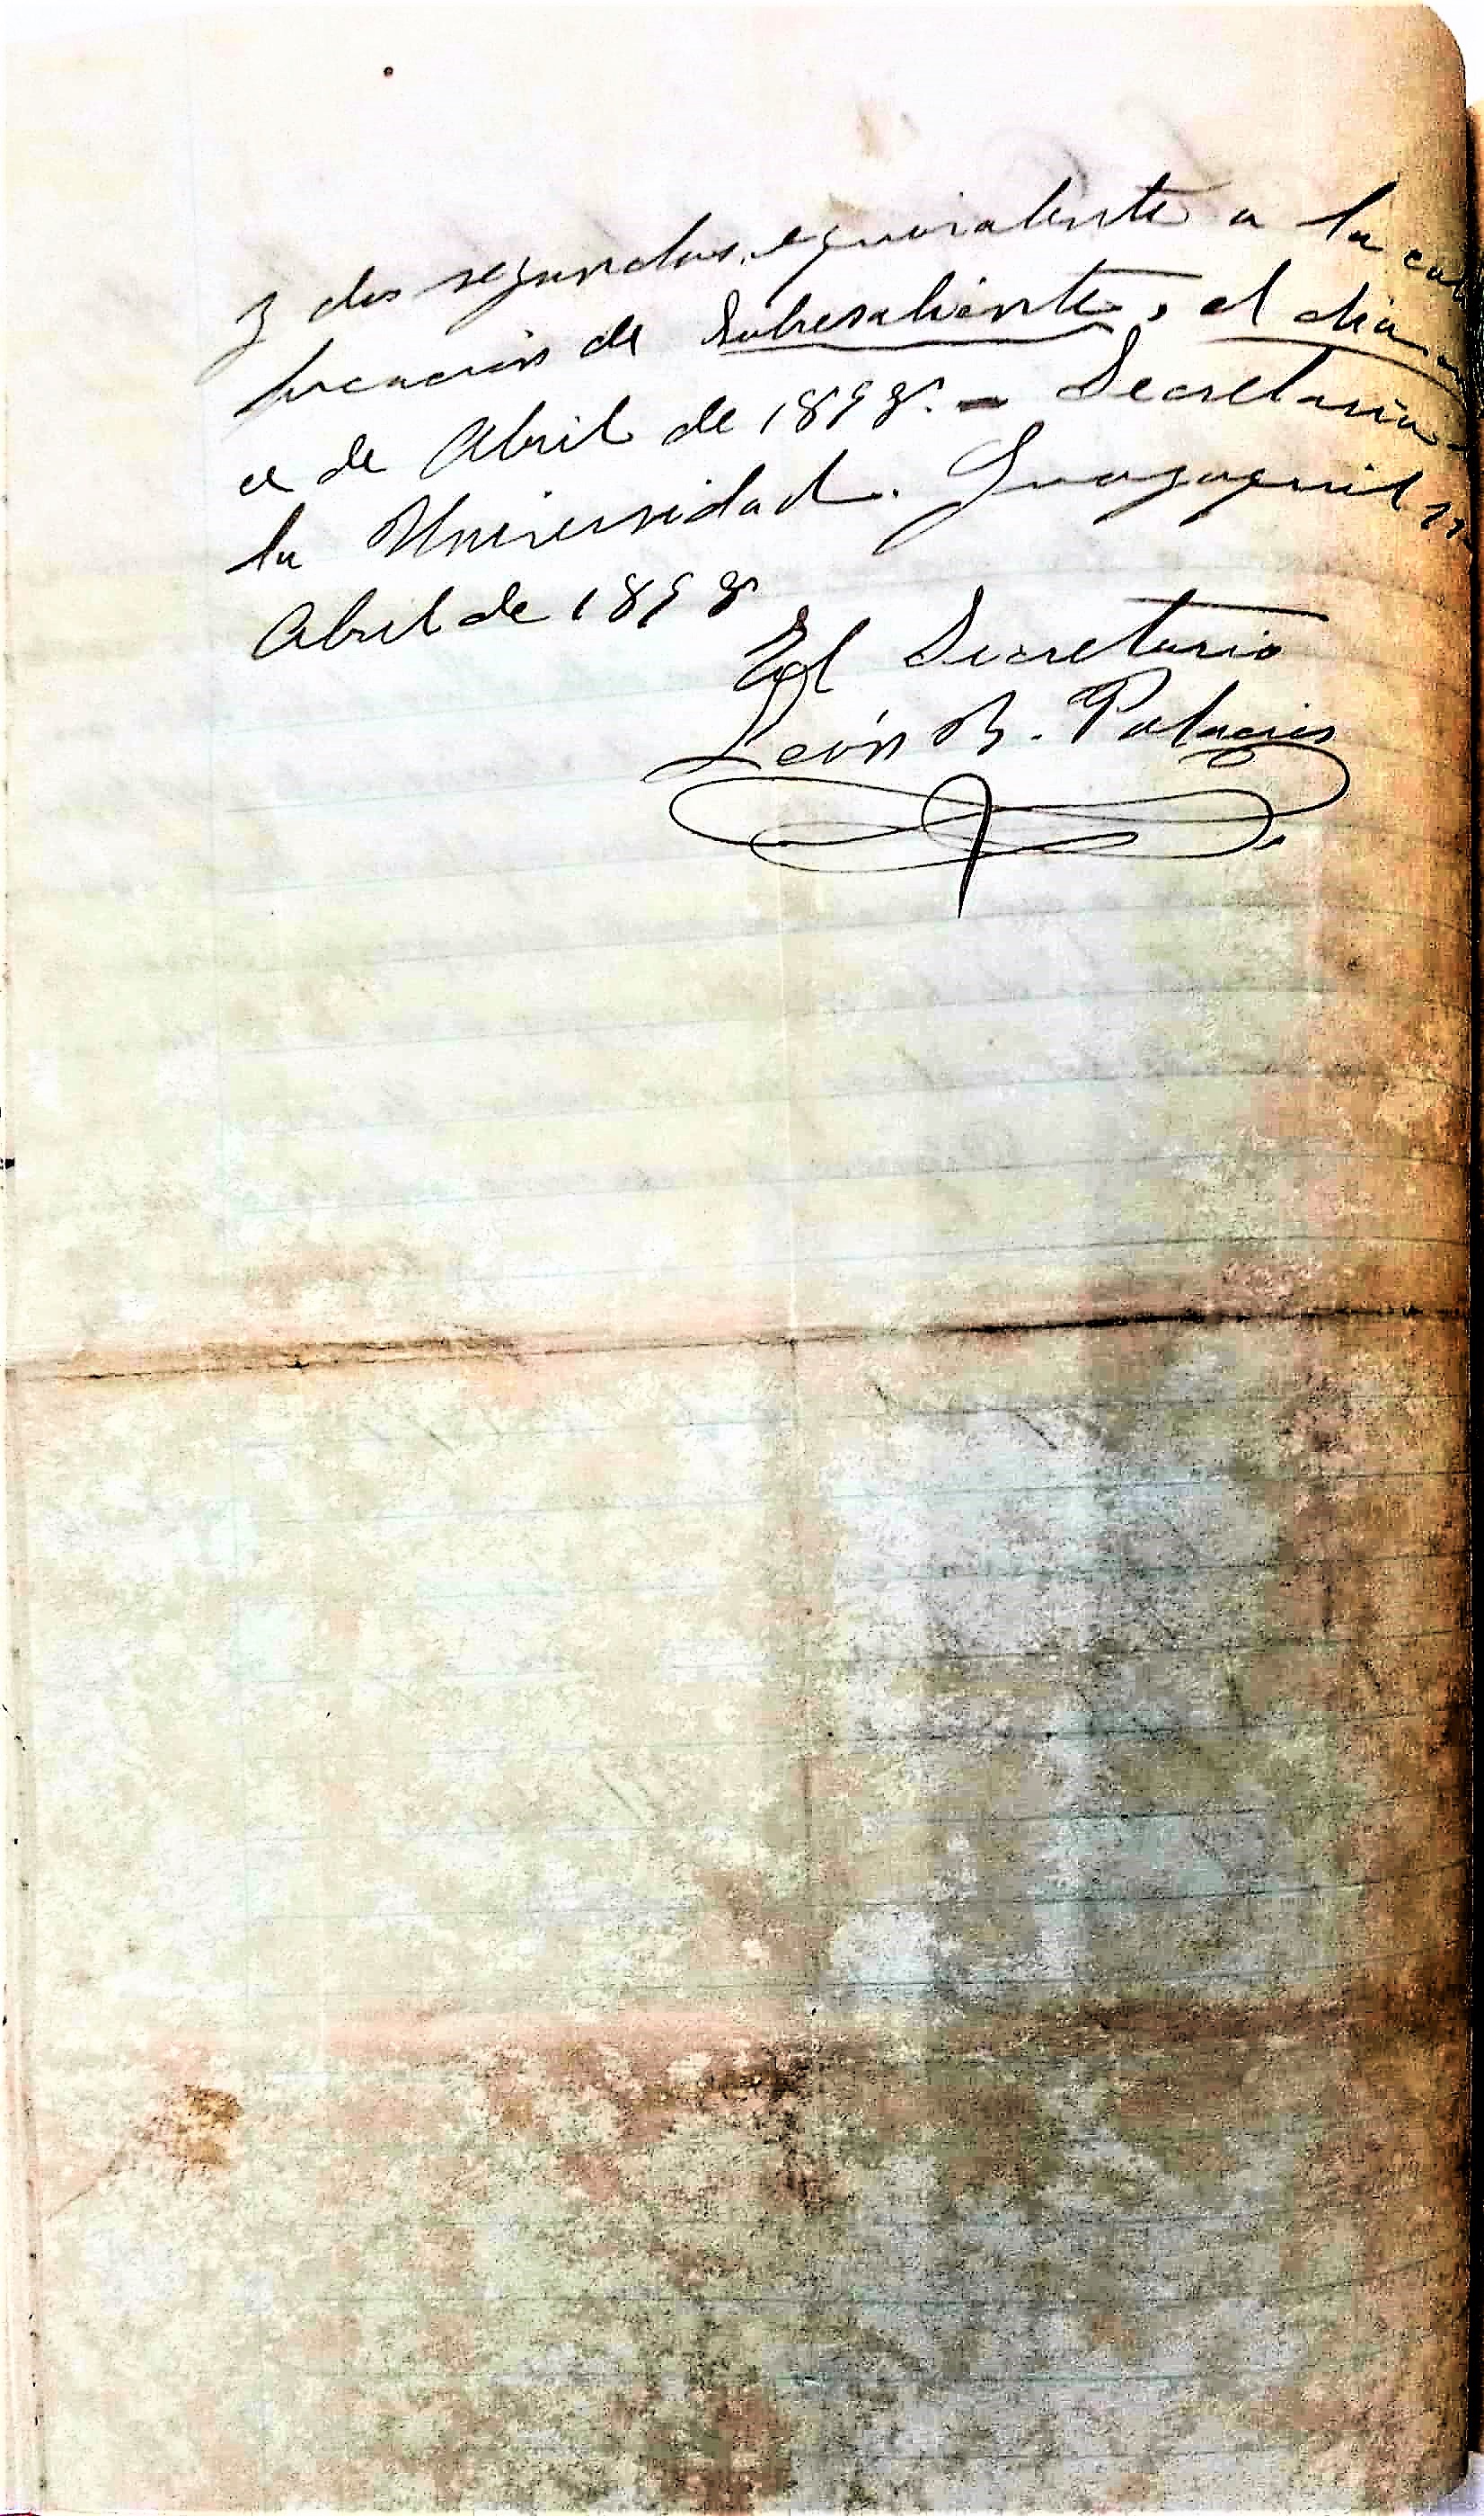 y dos segundas, equivalente a la cali
ficación de Sobresaliente, el día
ce de Abril de 1898. - Secretaría
la Universidad. Guayaquil
Abril de 1898
El Secretario
León B. Palacios